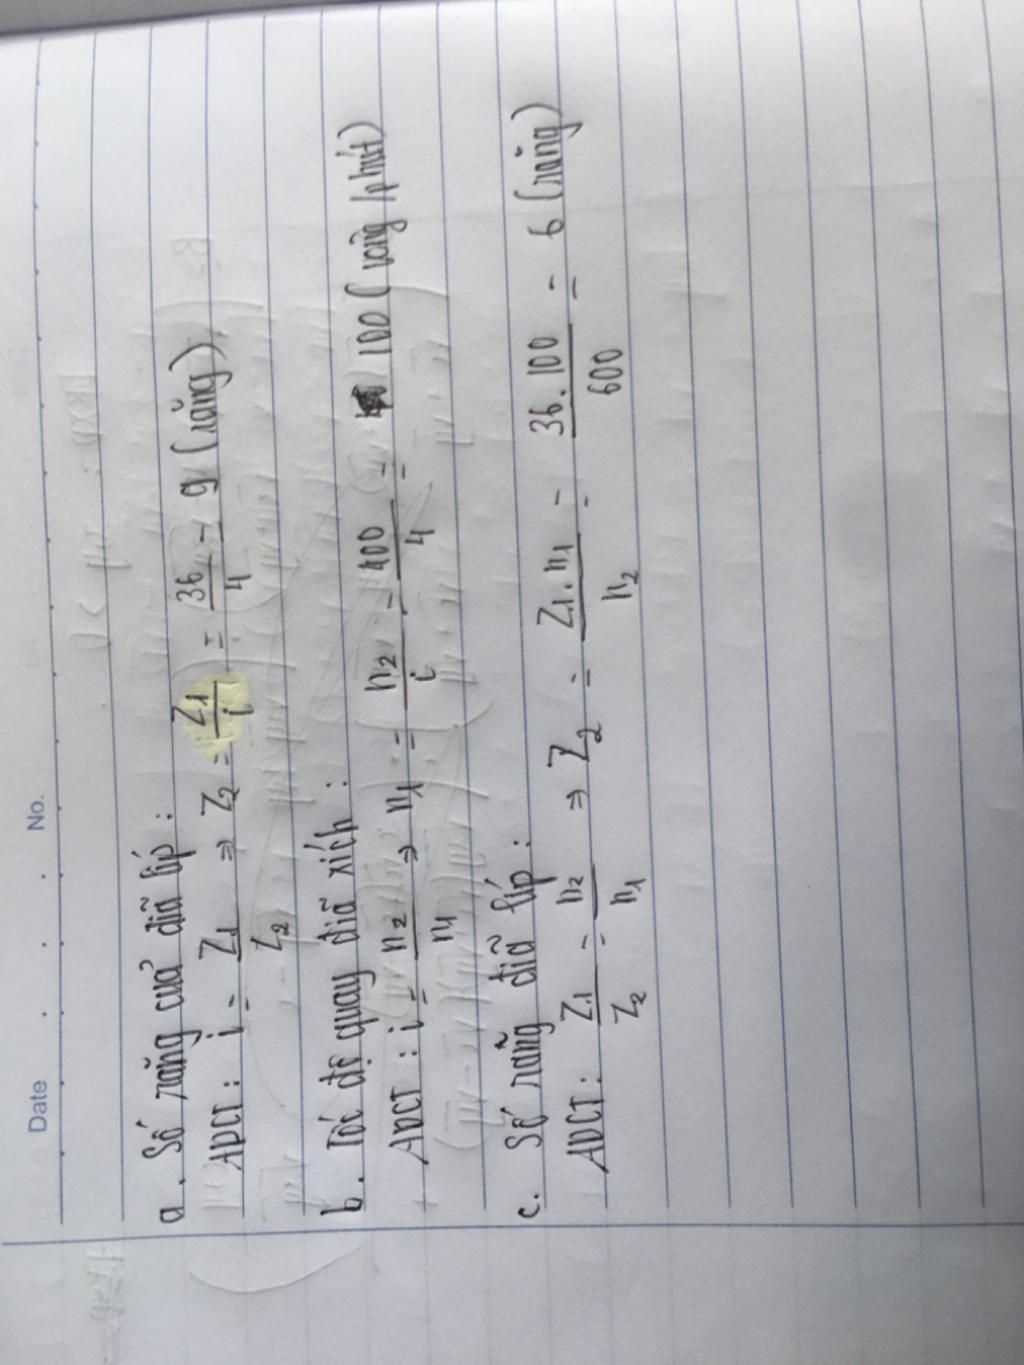 Date No.
a. Số răng của đĩa líp:
ADCT: i = Z1/Z2 ⇒ Z2 = Z1/i = 36/4 = 9 (răng)
b. Tốc độ quay đĩa xích:
ADCT: i = n2/n1 ⇒ n1 = n2/i = 400/4 = 100 (vòng/phút)
c. Số răng đĩa líp:
ADCT: Z1/Z2 = n2/n1 ⇒ Z2 = Z1.n1/n2 = 36.100/600 = 6 (răng)